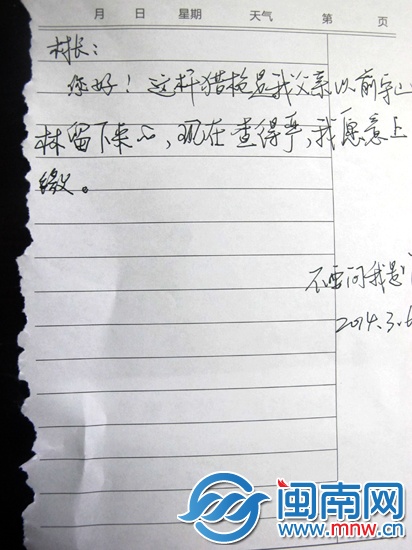 月 日 星期 天气 第 页
村长：
您好！这杆猎枪是我父亲以前守山
林留下来的，现在查得严，我愿意上
缴。
不要问我是
2014.3.6
闽南网
www.mnw.cn